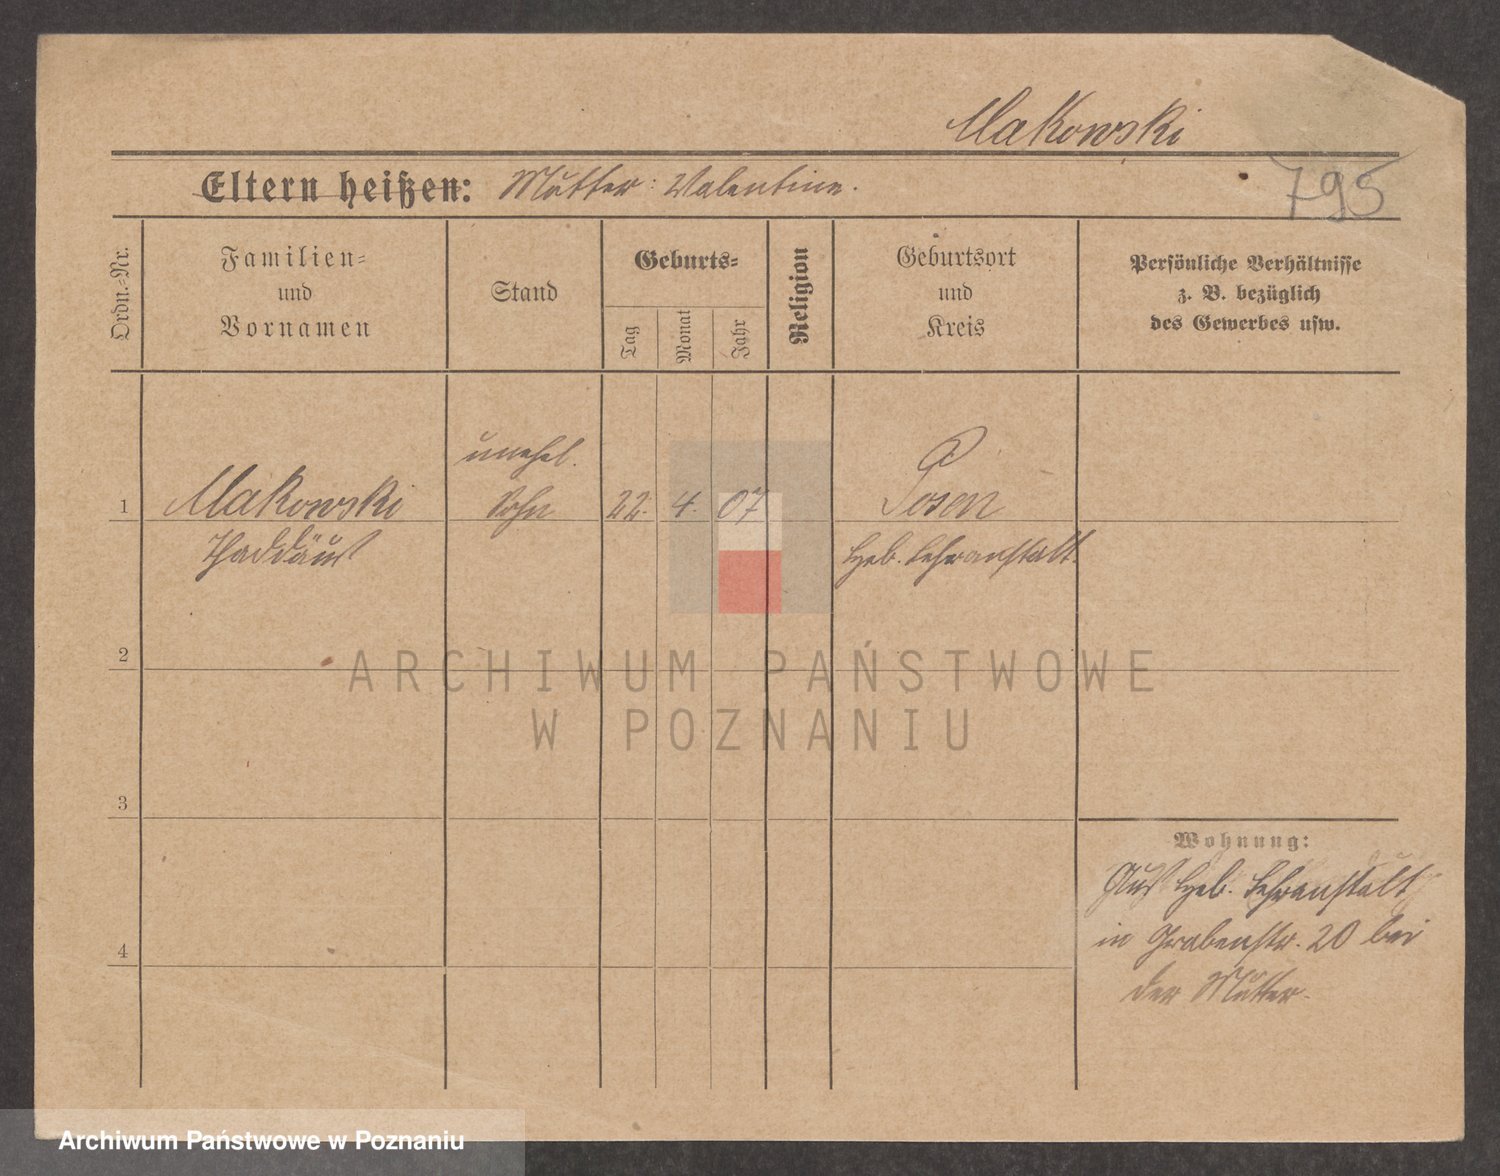 Makowski
Eltern heißen: Mutter: Valentine.
795
Ordn.-Nr.
Familien-
und
Vornamen
Stand
Geburts-
Tag
Monat
Jahr
Religion
Geburtsort
und
Kreis
Persönliche Verhältnisse
z. B. bezüglich
des Gewerbes usw.
unehel.
1 Makowski Sohn 22. 4. 07 Posen
Thaddäus Heb. Lehranstalt.
2
ARCHIWUM PAŃSTWOWE
W POZNANIU
3
Wohnung:
Aus Heb. Lehranstalt
in Grabenstr. 20 bei
der Mutter.
4
Archiwum Państwowe w Poznaniu